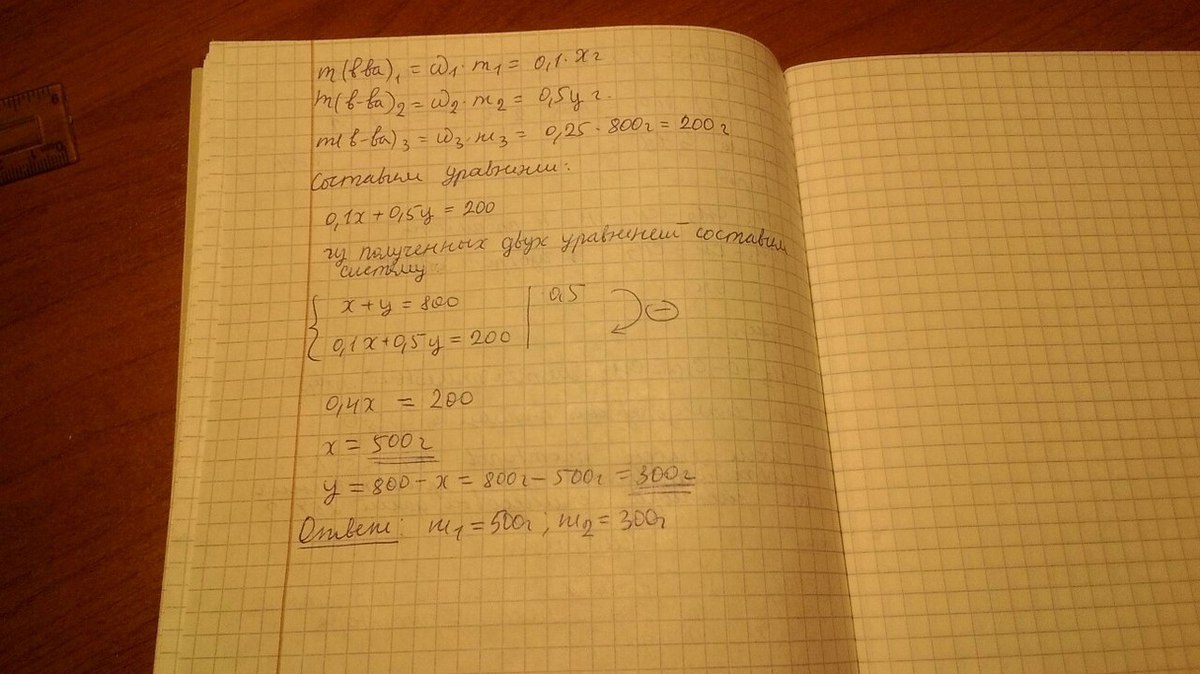 m(в-ва)₁ = ω₁ · m₁ = 0,1 · x г
m(в-ва)₂ = ω₂ · m₂ = 0,5y г.
m(в-ва)₃ = ω₃ · m₃ = 0,25 · 800г = 200 г
Составим уравнение:
0,1x + 0,5y = 200
из полученных двух уравнений составим
систему:
x + y = 800 | 0,5
0,1x + 0,5y = 200 | −
0,4x = 200
x = 500г
y = 800 − x = 800г − 500г = 300г
Ответ: m₁ = 500г; m₂ = 300г